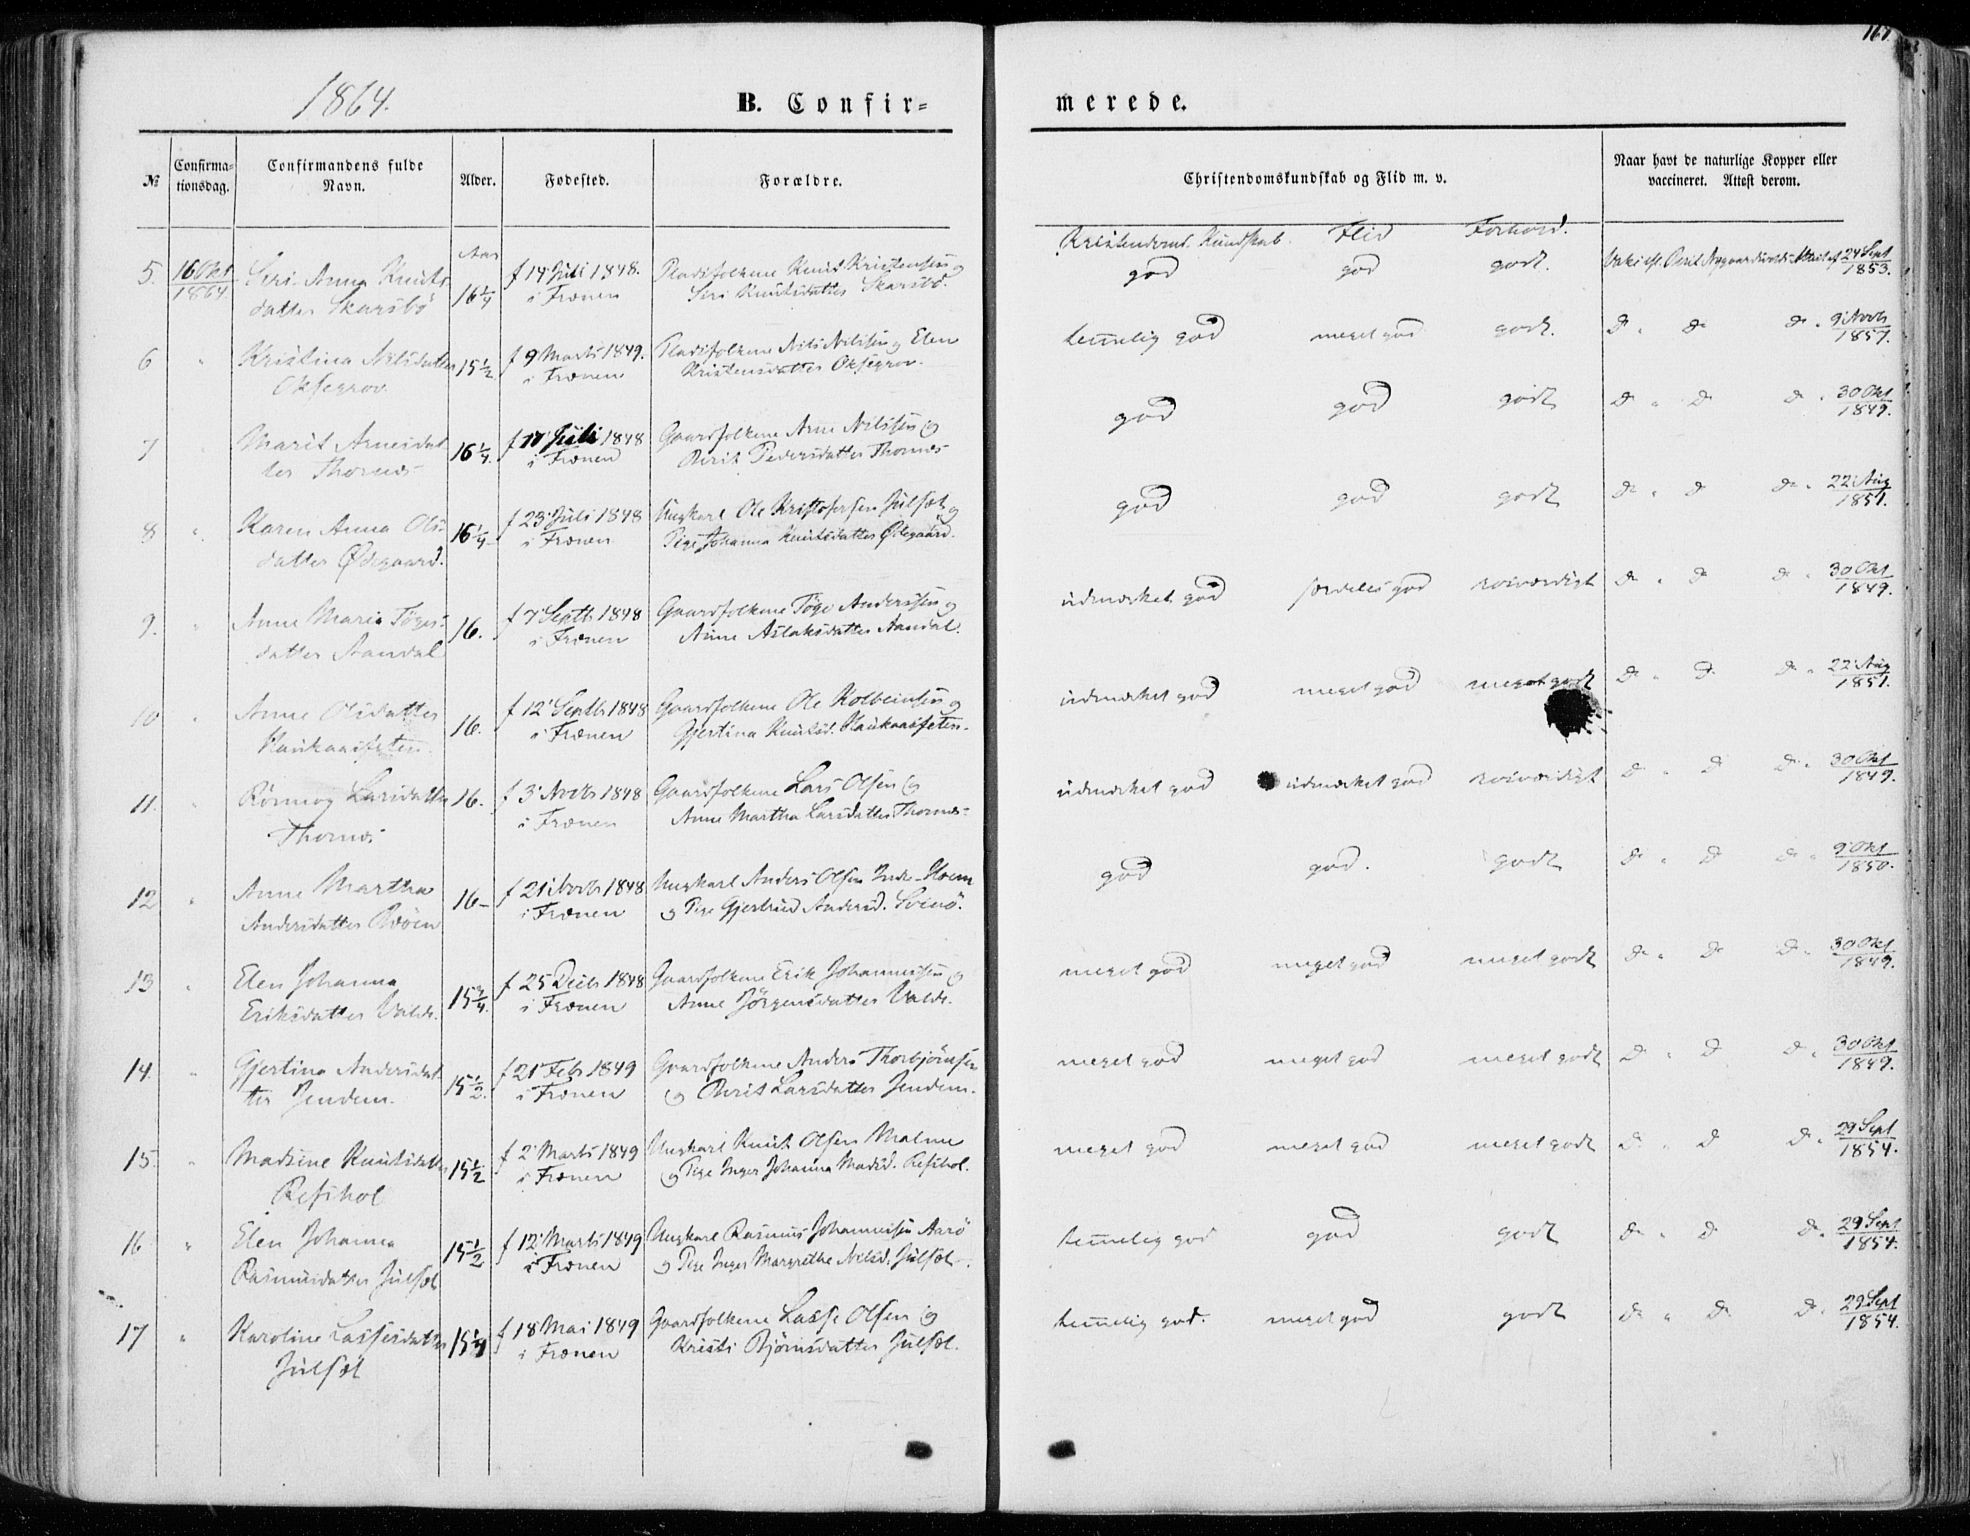 167.
1864.
B. Confir=
merede.
№
Confirma=
tionsdag.
Confirmandens fulde
Navn.
Alder.
Fødested.
Forældre.
Christendomskundskab og Flid m. v.
Naar havt de naturlige Kopper eller
vaccineret. Attest derom.
Aar
Kristendoms Kundskab. Flid Forhold.
5. 16 Okt 1864 Siri Anna Knuts
datter Skarsbö 16 1/4 f 14 Juli 1848.
i Frænen Pladsfolkene Knud Kristensen og
Siri Knutsdatter Skarsbö.
god god godt. 24 Sept 1853.
6 " Kristina Nilsdatter
Oksegrov 15 1/2 f 9 Marts 1849.
i Frænen Pladsfolkene Nils Nilsen og Elen
Kristensdatter Oksegrov.
temelig god meget god godt. Do " Do Do " 9 Novb 1857.
7 " Marit Arnesdat
ter Thornæs 16 1/4 f 17 Juli 1848
i Frænen Gaardfolkene Arne Nilsen og
Berit Pedersdatter Thornæs
god god godt Do " Do Do " 30 Okt 1849.
8 " Karen Anna Ols
datter Ødegaard. 16 1/4 f 23 Juli 1848
i Frænen Ungkarl Ole Kristofersen Julsæt og
Pige Johanna Knutsdatter Ødegaard.
god god godt Do " Do Do " 22 Aug 1851.
9. " Anne Maria Töges
datter Aandal 16. f 7 Septb 1848
i Frænen Gaardfolkene Töge Andersen og
Anne Aslaksdatter Aandal.
udmærket god særdeles god roesværdigt Do " Do Do " 30 Okt 1849.
10 " Anne Olsdatter
Haukaassæter 16. f 12 Septb 1848
i Frænen Gaardfolkene Ole Kolbeinsen og
Gjertina Knutsd. Haukaassæter.
udmærket god meget god meget godt Do " Do Do " 22 Aug 1851.
11. " Rönnog Larsdatter
Thornæs 16. f 3 Novb 1848
i Frænen Gaardfolkene Lars Olsen og
Anne Martha Larsdatter Thornæs
udmærket god udmærket god roesværdigt Do " Do Do " 30 Okt 1849.
12 " Anne Martha
Andersdatter 16 f 21 Novb 1848
i Frænen Ungkarl Anders Olsen Indr. Hoem
og Pige Gjertrud Andersd. Svinö.
god god. godt Do " Do Do " 9 Okt 1850.
13 " Elen Johanna
Eriksdatter Valde. 15 3/4 f 25 Decb 1848
i Frænen Gaardfolkene Erik Johannessen og
Anne Jörgensdatter Valde.
meget god meget god meget godt Do " Do Do " 30 Okt 1849.
14. " Gjertina Andersdat
ter Jendem. 15 1/2 f 21 Feb 1849
i Frænen Gaardfolkene Anders Thorbjörnsen
og Berit Larsdatter Jendem.
meget god meget god meget godt Do " Do Do " 30 Okt 1849.
15. " Madsine Knutsdatter
Refshol 15 1/2 f 2 Marts 1849
i Frænen Ungkarl Knut Olsen Malme
og Pige Inger Johanna Madsd. Refshol.
meget god meget god meget godt Do " Do Do " 29 Sept 1854.
16. " Elen Johanna
Rasmusdatter Julsæt 15 1/2 f 12 Marts 1849
i Frænen Ungkarl Rasmus Johannessen Aarö
og Pige Inger Margrethe Nilsd. Julsæt.
temelig god god godt Do " Do Do " 29 Sept 1854.
17 " Karoline Lassesdatter
Julsæt 15 1/4 f 18 Mai 1849
i Frænen Gaardfolkene Lasse Olsen og
Kristi Bjørnsdatter Julsæt.
temelig god. meget god godt Do " Do Do " 29 Sept 1854.